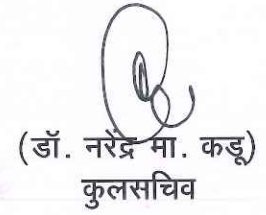 (डॉ. नरेंद्र मा. कडू)
कुलसचिव